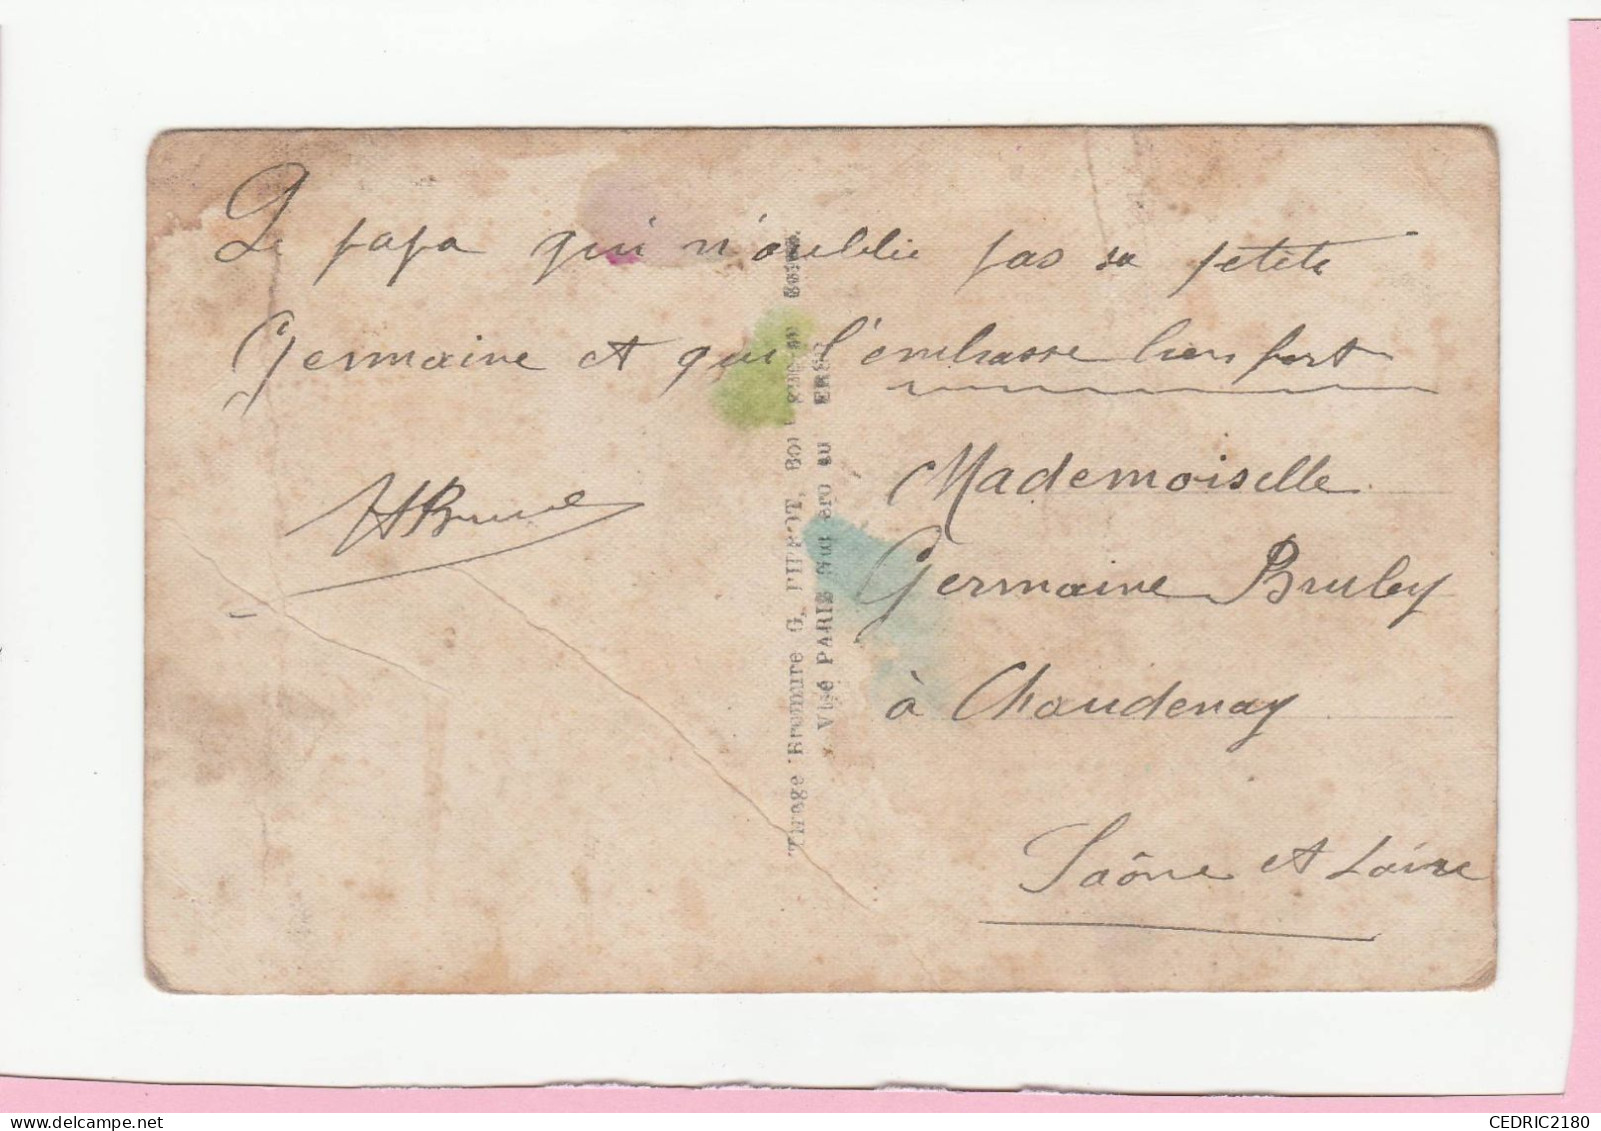 Le papa qui n'oublie pas sa petite
Germaine et qui l'embrasse bien fort
Mademoiselle
Germaine Bruley
à Chaudenay
Saône et Loire
Tirage Bromure G. PIPROT, Boi
Visé PARIS numéro au VERSO
CEDRIC2180